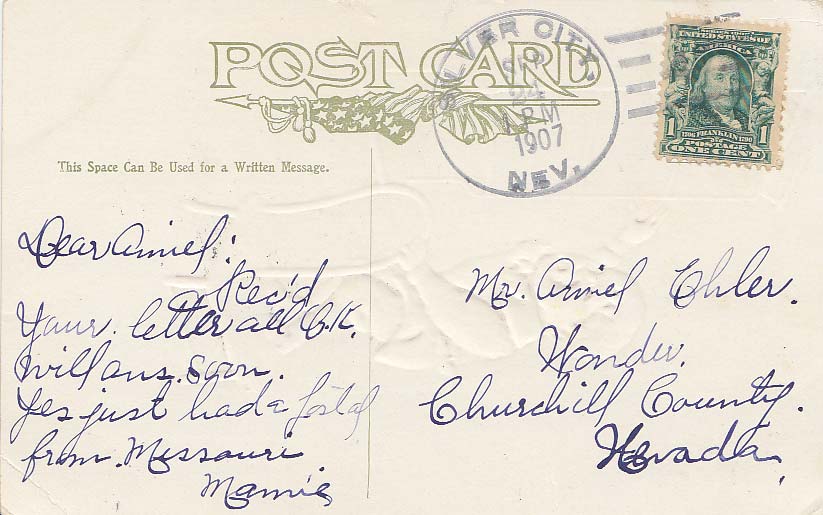 POST CARD
SILVER CITY,
SEP
24
A.P.M
1907
NEV.
SERIES 1902
UNITED STATES OF
AMERICA
1706 FRANKLIN 1790
1 POSTAGE 1
ONE CENT
This Space Can Be Used for a Written Message.
Dear Amiel:
Rec'd
Your letter all O.K.
Will ans. soon.
Yes just had a postal
from Missouri
Mamie
Mr. Amiel Ehler.
Wonder.
Churchill County.
Nevada.